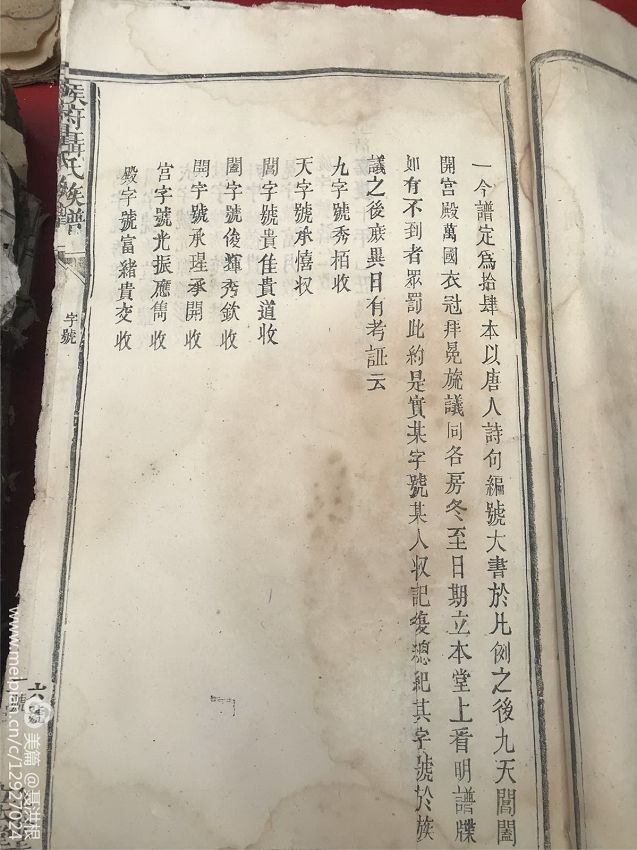 一今譜定爲拾肆本以唐人詩句編號大書於凡例之後九天閶闔
開宮殿萬國衣冠拜冕旒議同各房冬至日期立本堂上看明譜牒
如有不到者眾罰此約是實某字號某人収記復總紀其字號於族
議之後庶異日有考証云
九字號秀栢收
天字號承禧収
閶字號貴佳貴道收
闔字號俊輝秀欽收
開字號承瑆承開收
宮字號光振應雋收
殿字號富緒貴交收
族譜
字號
六
美篇 @聂洪根
www.meipian.cn/c/12927024